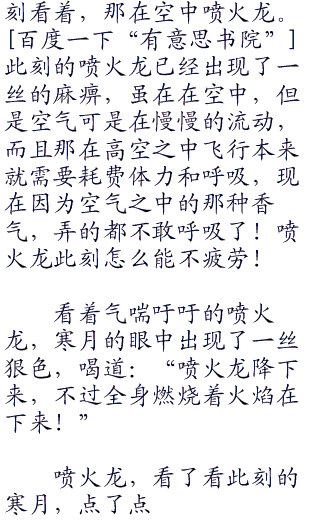 刻看着，那在空中喷火龙。
[百度一下“有意思书院”]
此刻的喷火龙已经出现了一
丝的麻痹，虽在在空中，但
是空气可是在慢慢的流动，
而且那在高空之中飞行本来
就需要耗费体力和呼吸，现
在因为空气之中的那种香
气，弄的都不敢呼吸了！喷
火龙此刻怎么能不疲劳！
看着气喘吁吁的喷火
龙，寒月的眼中出现了一丝
狠色，喝道：“喷火龙降下
来，不过全身燃烧着火焰在
下来！”
喷火龙，看了看此刻的
寒月，点了点